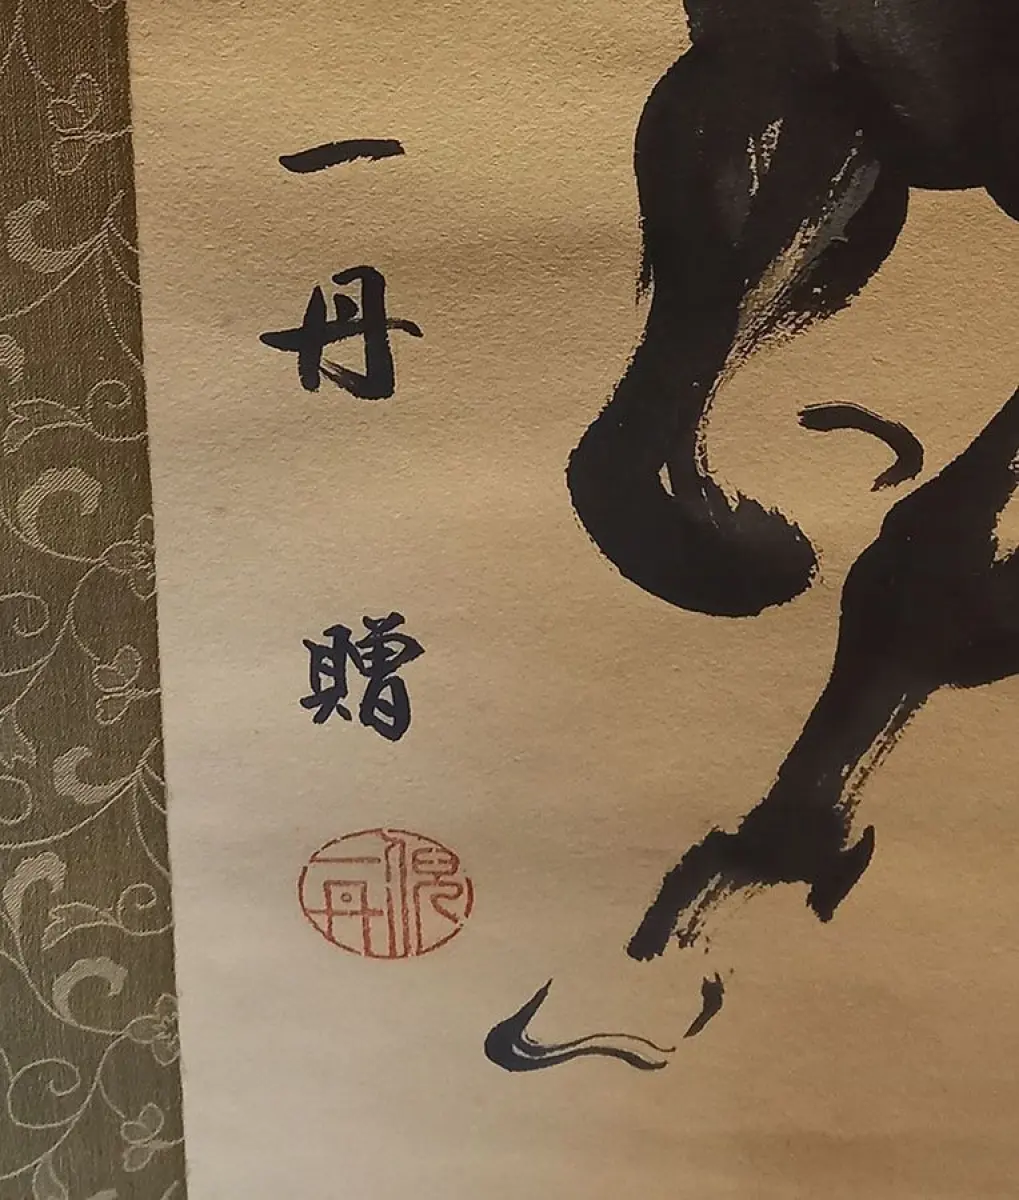 一丹贈
倪一丹